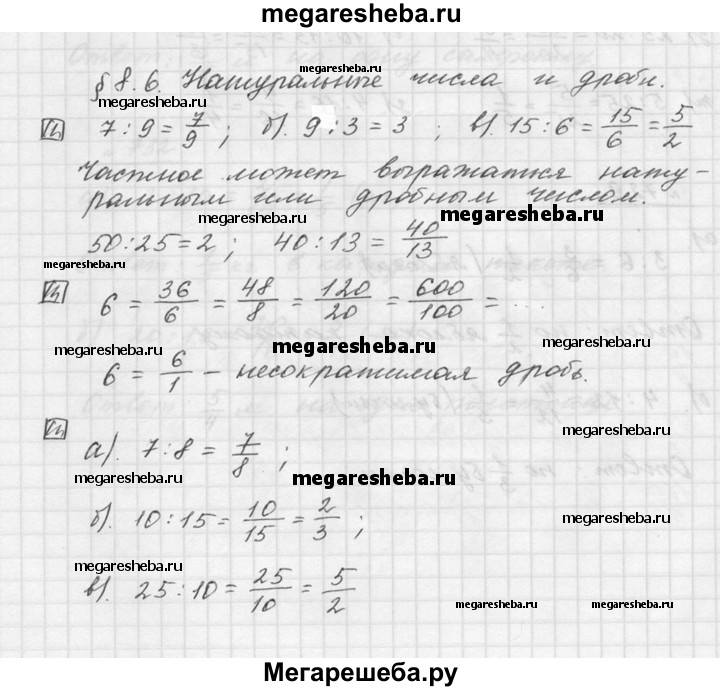 megaresheba.ru
§ 8.6. Натуральные числа и дроби.
megaresheba.ru
megaresheba.ru
7 : 9 = 7/9 ; б). 9 : 3 = 3 ; в). 15 : 6 = 15/6 = 5/2
Частное может выражаться нату-
ральным или дробным числом.
megaresheba.ru
megaresheba.ru
50 : 25 = 2 ; 40 : 13 = 40/13
megaresheba.ru
6 = 36/6 = 48/8 = 120/20 = 600/100 = ...
megaresheba.ru
megaresheba.ru
megaresheba.ru
6 = 6/1 – несократимая дробь.
megaresheba.ru
а). 7 : 8 = 7/8 ;
megaresheba.ru
б). 10 : 15 = 10/15 = 2/3 ;
megaresheba.ru
megaresheba.ru
в). 25 : 10 = 25/10 = 5/2
megaresheba.ru
megaresheba.ru
Мегарешеба.ру